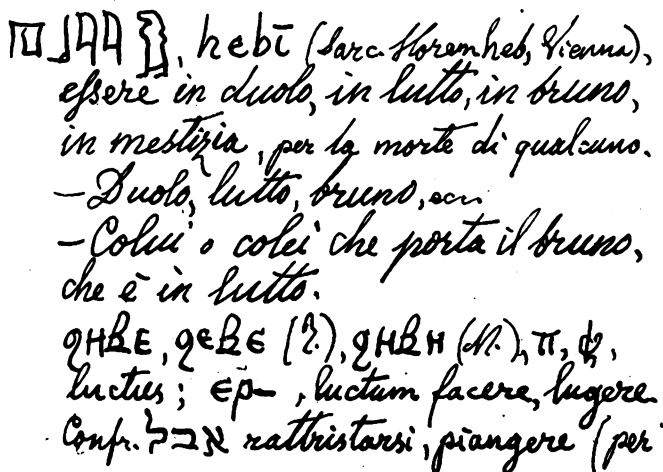 , hebī (Sarc. Horemheb, Vienna),
essere in duolo, in lutto, in bruno,
in mestizia, per la morte di qualcuno.
— Duolo, lutto, bruno, ecc.
— Colui o colei che porta il bruno,
che è in lutto.
ϩⲏⲃⲉ, ϩⲉⲃⲉ (Z.), ϩⲏⲃⲏ (M.), ⲡ,
luctus; ⲉⲣ–, luctum facere, lugere.
Confr. אבל rattristarsi, piangere (per